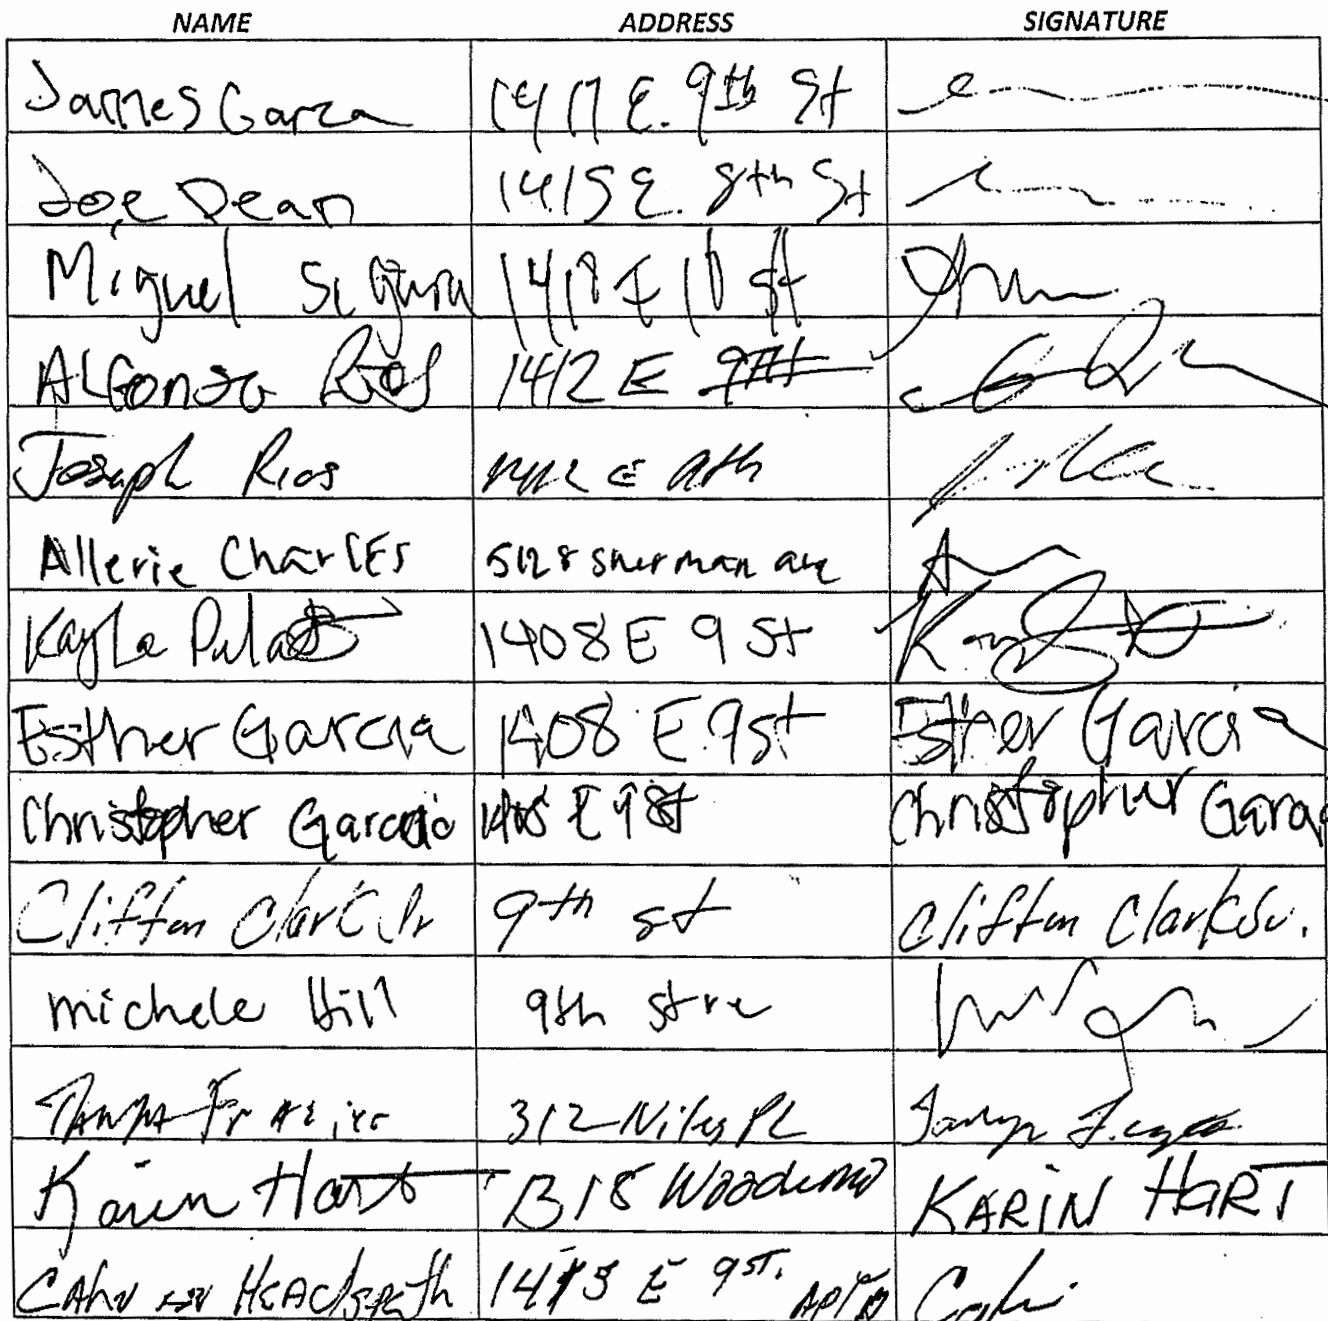 NAME ADDRESS SIGNATURE
James Garza 1417 E. 9th St
Joe Dean 1415 E. 8th St
Miguel Segura 1418 E 10 st
ALFonso Rios 1412 E 9th
Joseph Rios 1412 E 9th
Allerie CharlEs 5128 Sherman ave
Kayla 1408 E 9 St
Esther Garcia 1408 E 9 st Esther Garcia
Christopher Garcia 1408 E 9 St Christopher Garcia
Clifton Clark Jr 9th st Clifton Clark
michele Hill 9th stre
312 Niles PL
Karin Hart Woodland KARIN HART
HeAdspeth E 9 ST.